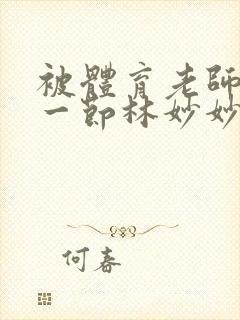 被體育老師
一節林妙妙
何春